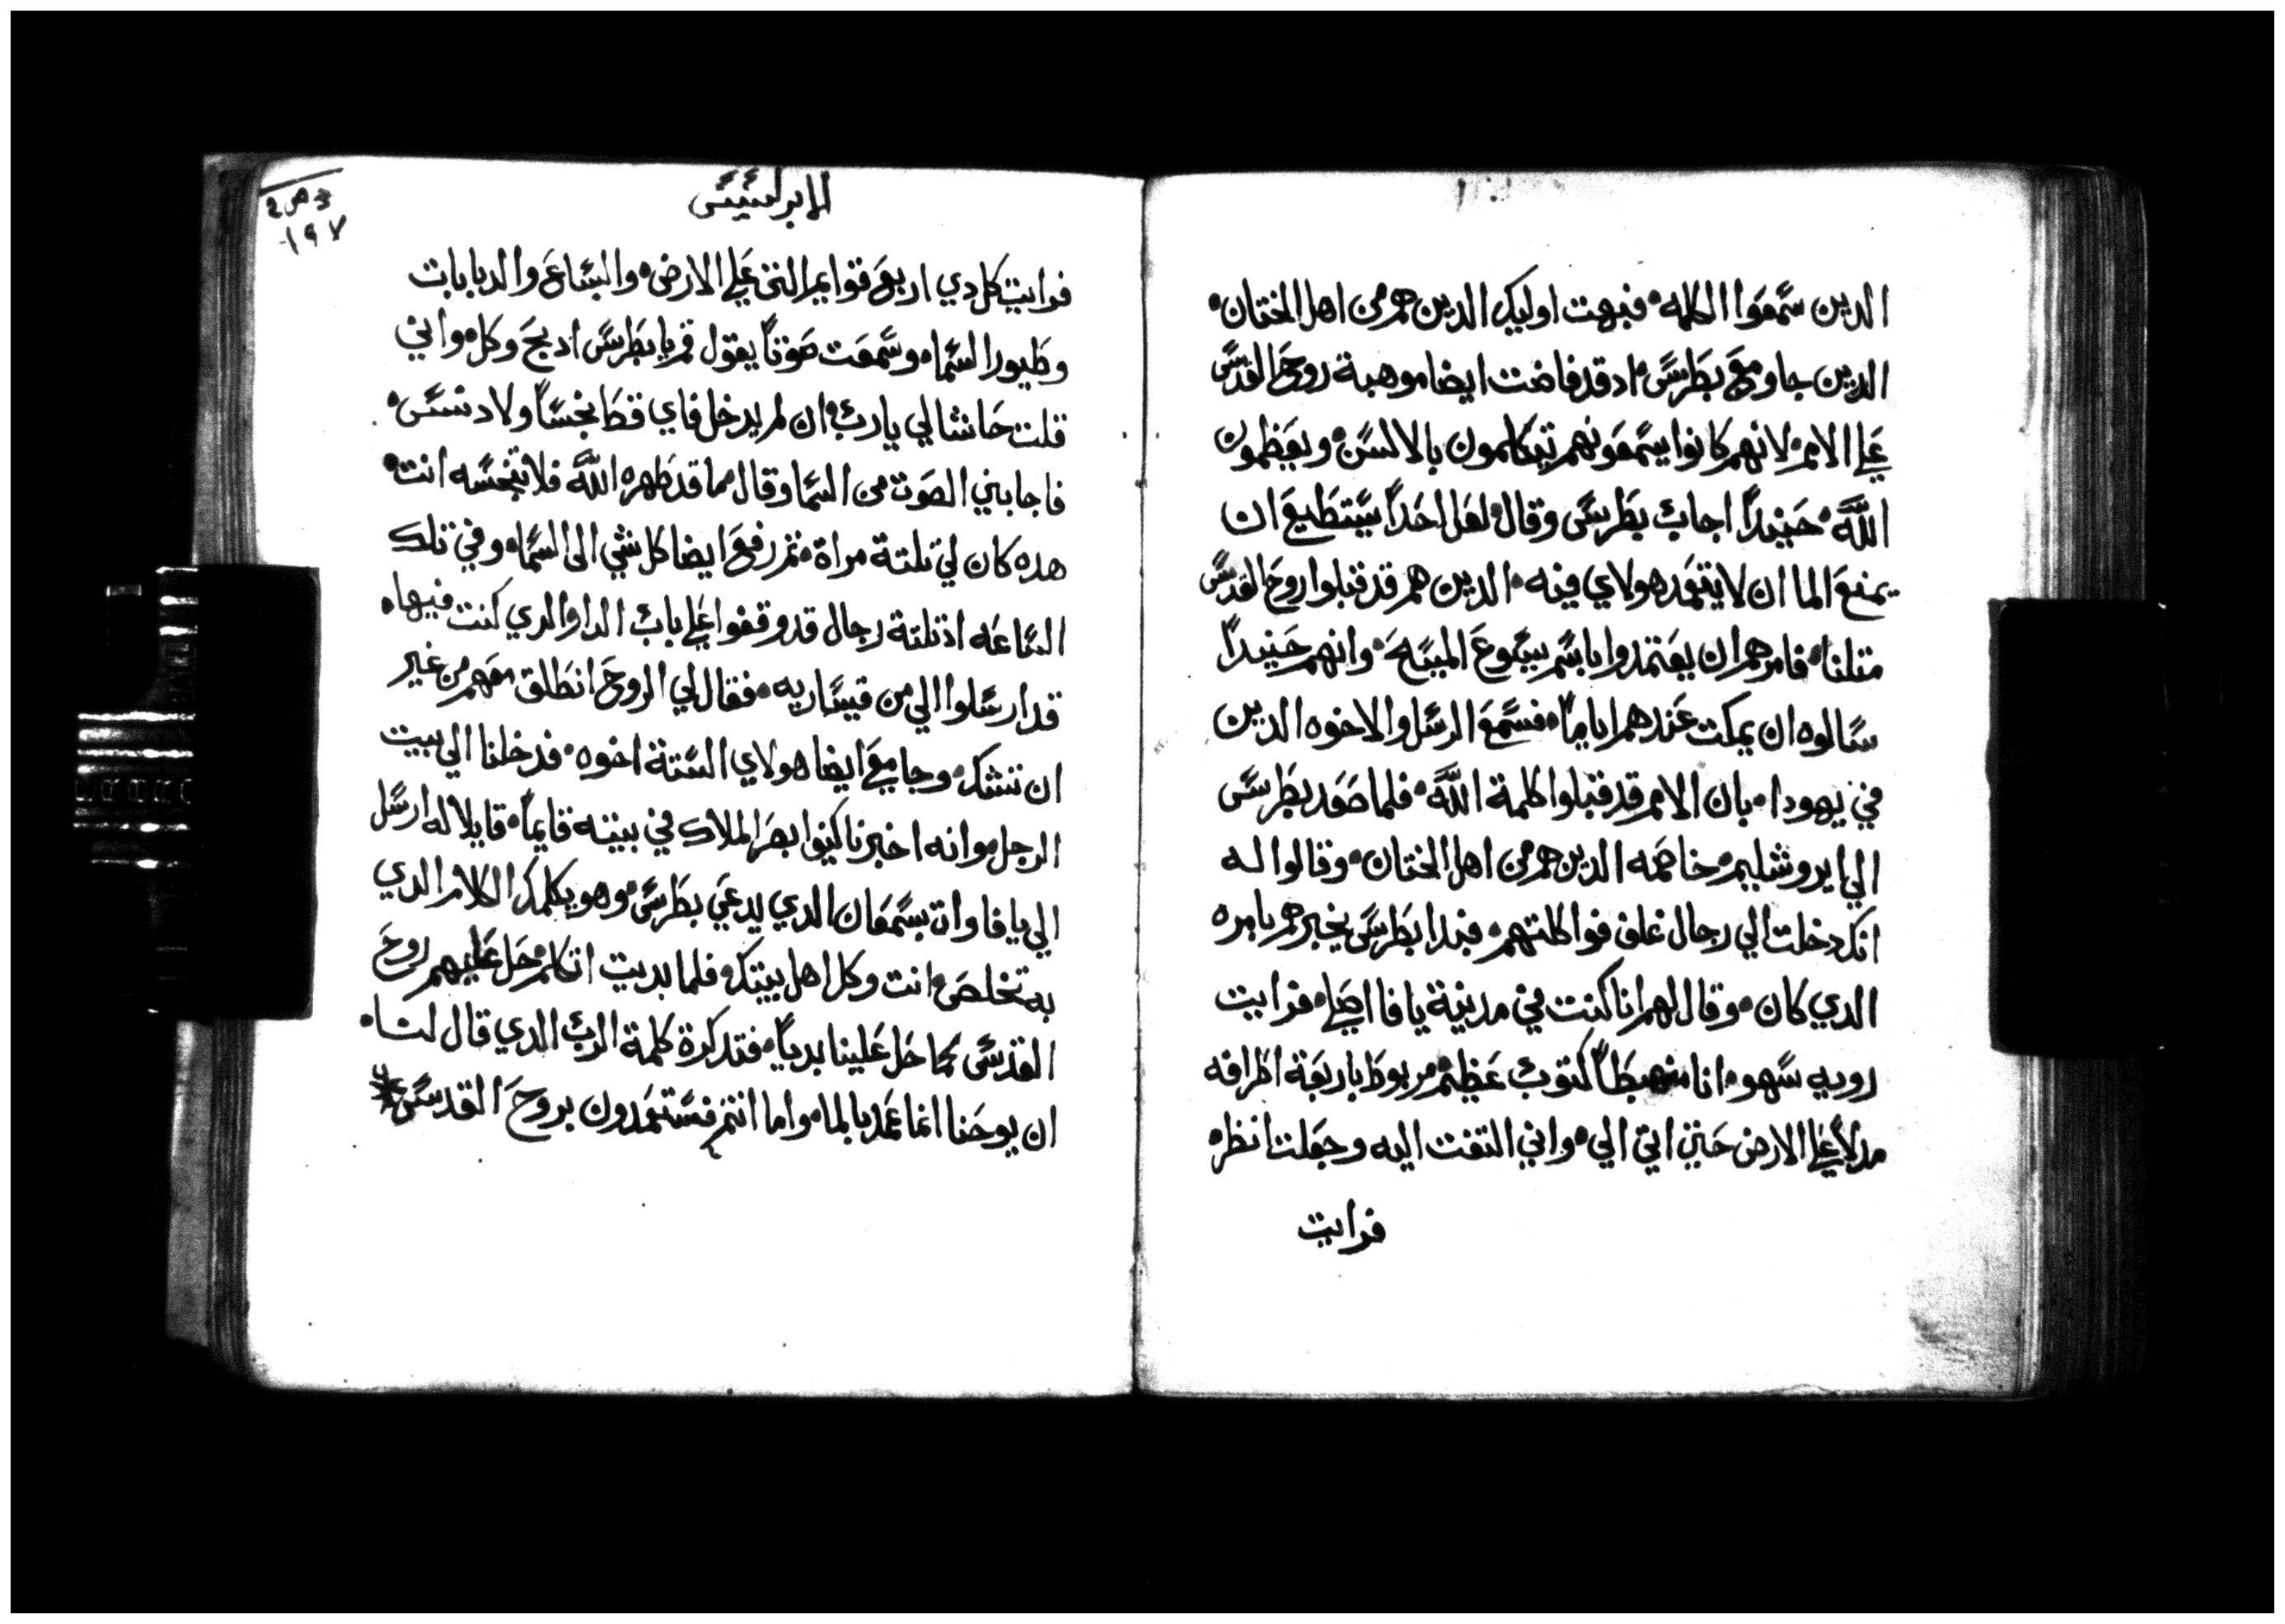 الدين سمعوا الكلمه• فبهت اوليك الدين هم من اهل الختان•
الدين جاو مع بطرس• اد قد فاضت ايضا موهبة روح القدس
علي الامم• لانهم كانوا يسمعونهم يتكلمون بالالسن• ويعظمون
الله• حينيداً اجاب بطرس وقال• لعل احداً يستطيع ان
يمنع الما ان لا يتعمد هولاي فيه• الدين هم قد قبلوا روح القدس
متلنا• فامرهم ان يعتمدوا باسم يسوع المسيح• وانهم حينيداً
سالوه ان يمكت عندهم اياماً• فسمع الرسل والاخوه الدين
في يهودا• بان الامم قد قبلوا كلمة الله• فلما صعد بطرس
الي ايروشليم• خاصمه الدين هم من اهل الختان• وقالوا له
انك دخلت الي رجال غلف فواكلتهم• فبدا بطرس يخبرهم بامره
الدي كان• وقال لهم انا كنت في مدينة يافا اصلي• فرايت
رويه سهو• انا منهبطاً كتوب عظيم• مربوط باربعة اطرافه
مدلا علي الارض حتي اتي الي• واني التفت اليه وجعلت انظره
فرايت
الابراكسيس
١٩٧
فرايت كل دي اربع قوايم التي علي الارض• والسباع والدبابات
وطيور السما• وسمعت صوتاً يقول قم يا بطرس ادبح وكل• واني
قلت حاشا لي يا رب• ان لم يدخل فاي قط نجساً ولا دنس•
فاجابني الصوت من السما وقال مما قد طهره الله فلا تنجسه انت•
هده كان لي تلتة مراة• تم رفع ايضا كل شي الى السما• وفي تلك
الساعه اذ تلتة رجال قد وقفوا علي باب الدار الدي كنت فيها•
قد ارسلوا الي من قيساريه• فقال لي الروح انطلق معهم من غير
ان تشك• وجا معي ايضا هولاي الستة اخوه• فدخلنا الي بيت
الرجل• وانه اخبرنا كيف ابصر الملاك في بيته قايماً• قايلا له ارسل
الي يافا وات بسمعان الدي يدعي بطرس• وهو يكلمك الكلام الدي
به تخلص• انت وكل اهل بيتك• فلما بديت اتكلم• حل عليهم روح
القدس كما حل علينا بدياً• فتدكرة كلمة الرب الدي قال لنا•
ان يوحنا انما عمد بالما• واما انتم فستعمدون بروح القدس